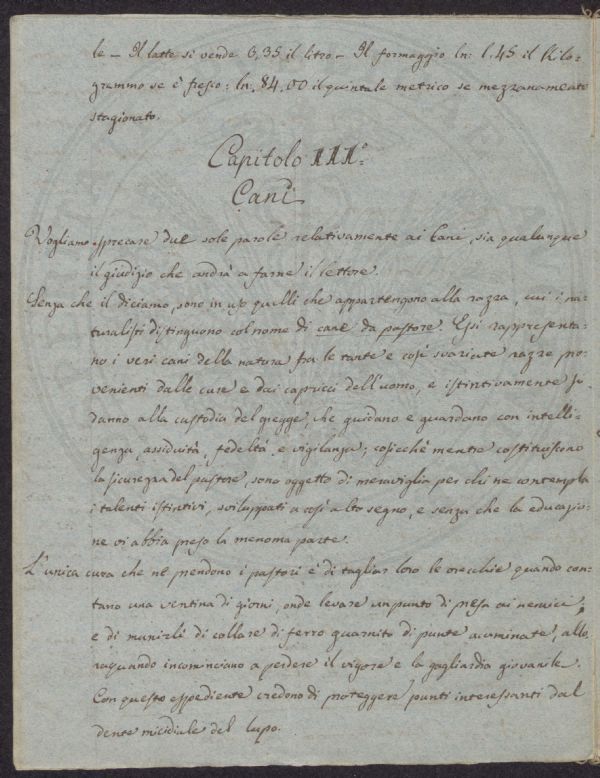 le – Il latte si vende 0,35 il litro – Il formaggio ln: 1.45 il Kilo-
grammo se è fresco: ln: 84.00 il quintale metrico se mezzanamente
stagionato.
Capitolo III°
Cani
Vogliamo sprecare due sole parole relativamente ai Cani, sia qualunque
il giudizio che andrà a farne il lettore.
Senza che il diciamo, sono in uso quelli che appartengono alla razza, cui i na-
turalisti distinguono col nome di cane da pastore. Essi rappresenta-
no i veri cani della natura fra le tante e così svariate razze pro-
venienti dalle cure e dai capricci dell'uomo, e istintivamente si
danno alla custodia del gregge, che guidano e guardano con intelli-
genza, assiduità, fedeltà e vigilanza; cosicchè mentre costituiscono
la sicurezza del pastore, sono oggetto di meraviglia per chi ne contempla
i talenti istintivi, sviluppati a così alto segno, e senza che la educazio-
ne vi abbia preso la menoma parte.
L'unica cura che ne prendono i pastori è di tagliar loro le orecchie quando con-
tano una ventina di giorni, onde levare un punto di presa ai nemici,
e di munirli di collare di ferro guarnito di punte acuminate, allo-
raquando incominciano a perdere il vigore e la gagliardia giovanile.
Con questo espediente credono di proteggere i punti interessanti dal
dente micidiale del lupo.